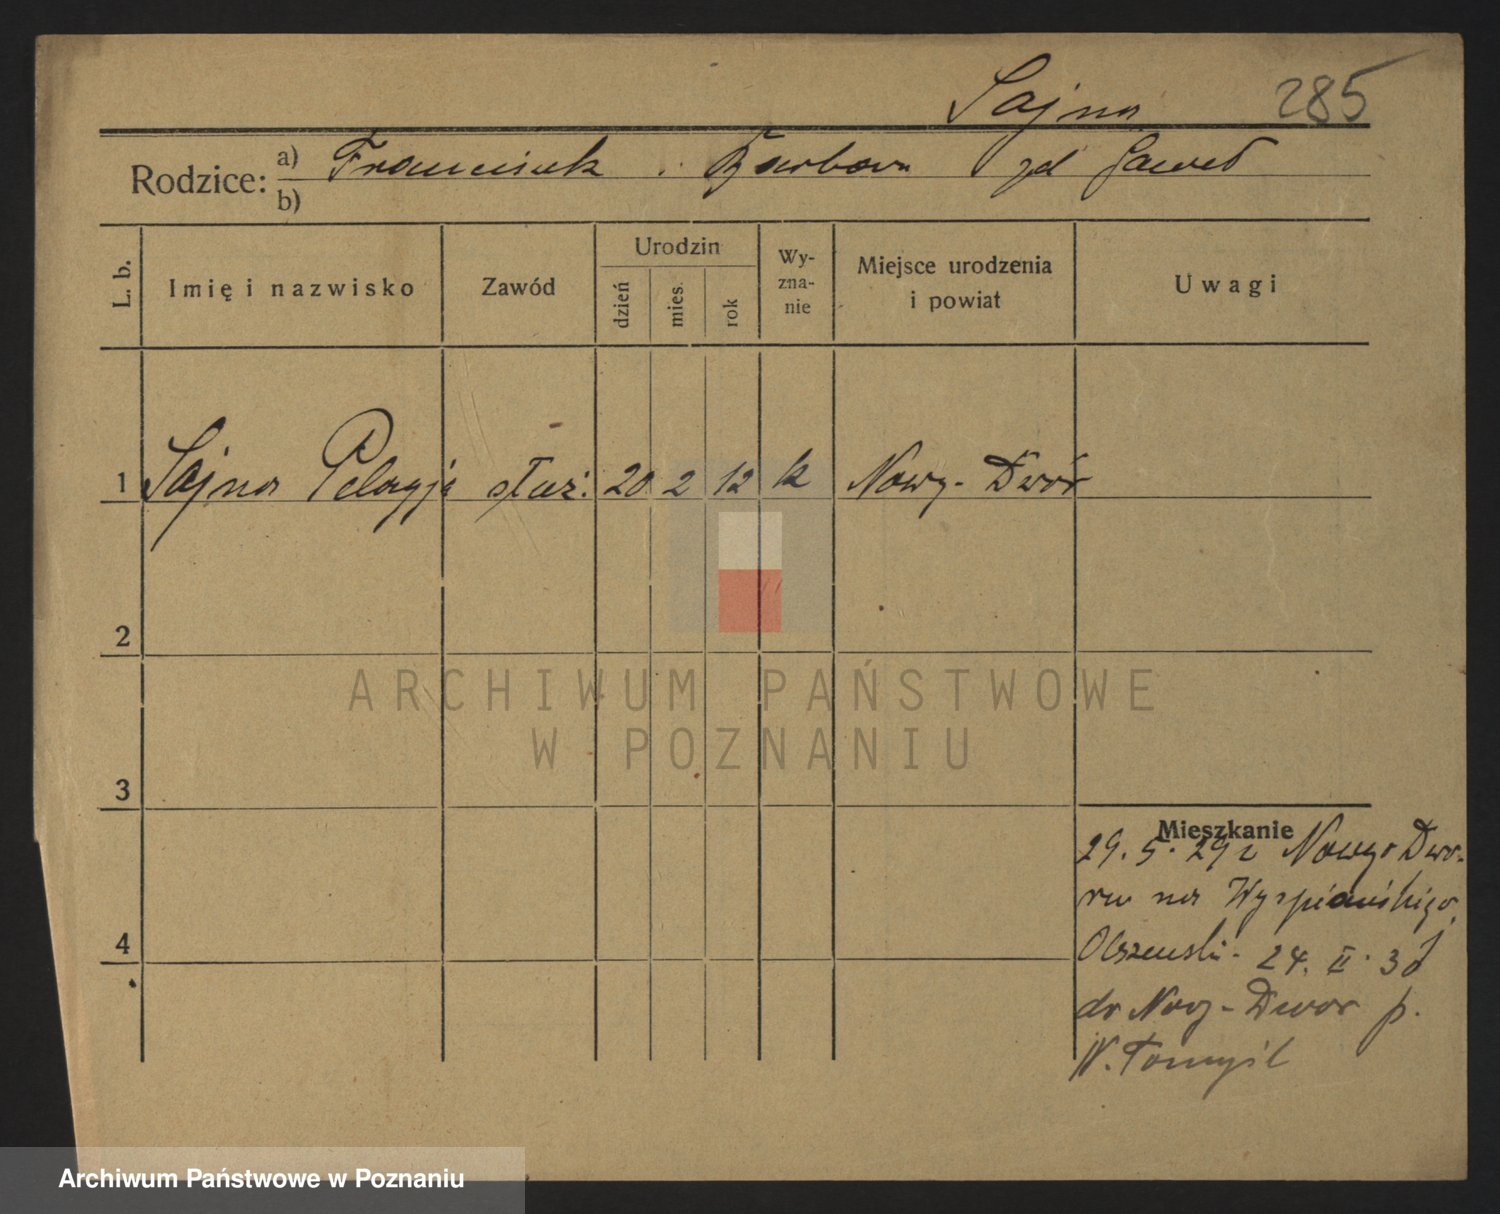 Sajna 285
Rodzice: a) Franciszek i Barbara zd Gaweł
b)
L. b. Imię i nazwisko Zawód Urodzin dzień mies. rok Wy-zna-nie Miejsce urodzenia i powiat Uwagi
1 Sajna Pelagja służ. 20 2 12 k Nowy-Dwór
2
3
4
Mieszkanie
29. 5. 29 z Nowego Dwo-
ru na Wyspiańskiego
Olszewski - 24. II. 30
do Nowy-Dwór p.
N. Tomyśl
ARCHIWUM PAŃSTWOWE
W POZNANIU
Archiwum Państwowe w Poznaniu